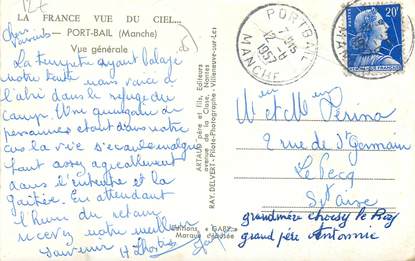 LA FRANCE VUE DU CIEL...
PORT-BAIL (Manche)
Vue générale
Chers
La tempête ayant balayé
notre tente nous voici à
l'abri dans le refuge du
camp. Une quinzaine de
personnes étant dans notre
cas la vie s'écoule malgré
tout assez agréablement
dans l'entente et la
gaîté. En attendant
l'heure du retour
recevez notre meilleur
souvenir
ARTAUD père et fils, Editeurs
avenue de la Close, Nantes
RAY. DELVERT - Pilote-Photographe - Villeneuve-sur-Lot
Editions « GABY »
Marque déposée
PORT-BAIL
12-8
1957
MANCHE
20F
M et Me
2 rue de St Germain
Le Pecq
S et Oise
grandmère choisy le Roy
grand père